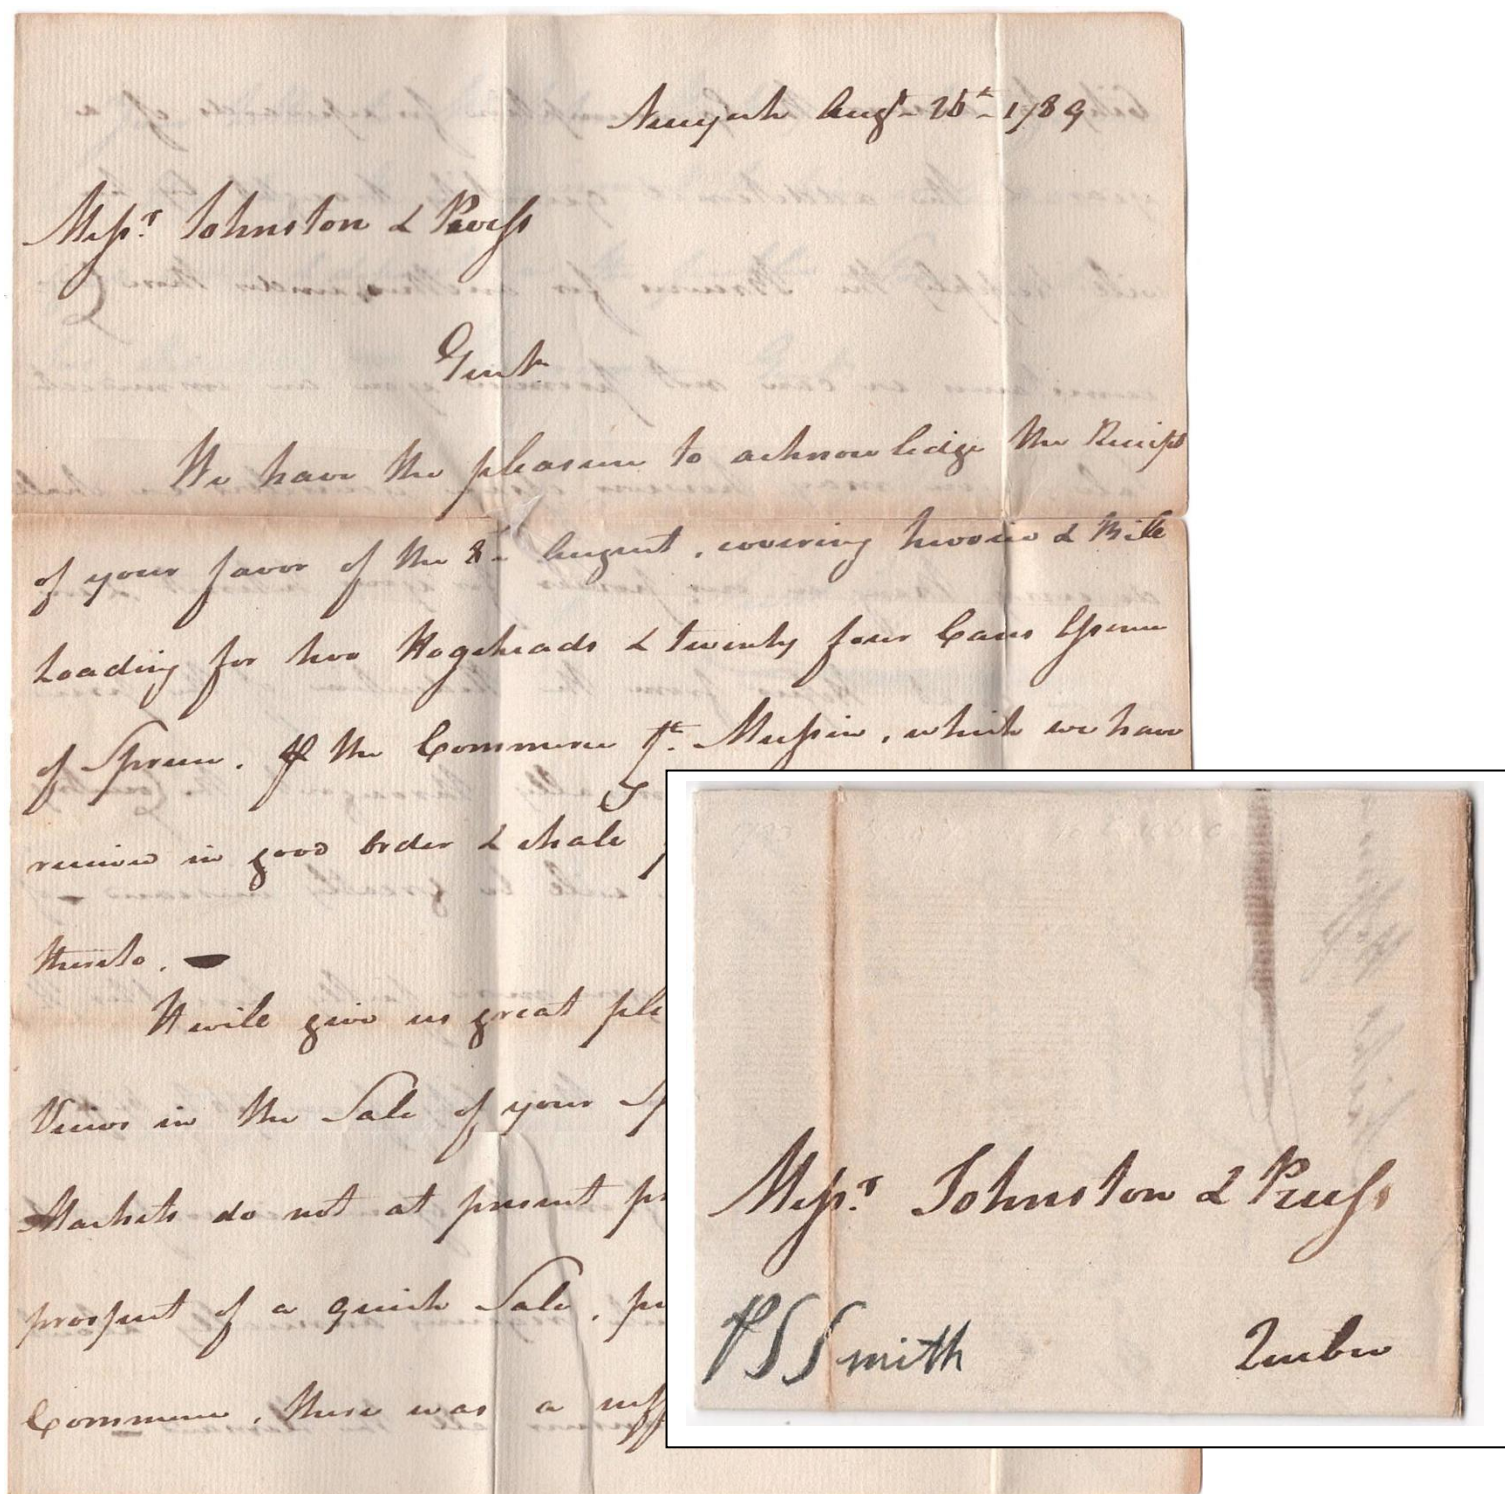 Newyork Augt 26th 1789
Messrs Johnston & Purss
Gent.
We have the pleasure to acknowledge the Receipt
of your favor of the 8th August, covering Invoice & Bill
Loading for two Hogsheads & twenty four Cases Essence
of Spruce, the Commerce which we have
receive in good Order & shall
thereto.
It will give us great ple
Views in the Sale of your Sp
Markets do not at present pr
prospect of a quick Sale, pr
Commerce, there was a suff
Messrs Johnston & Purss
PSSmith
Quebec